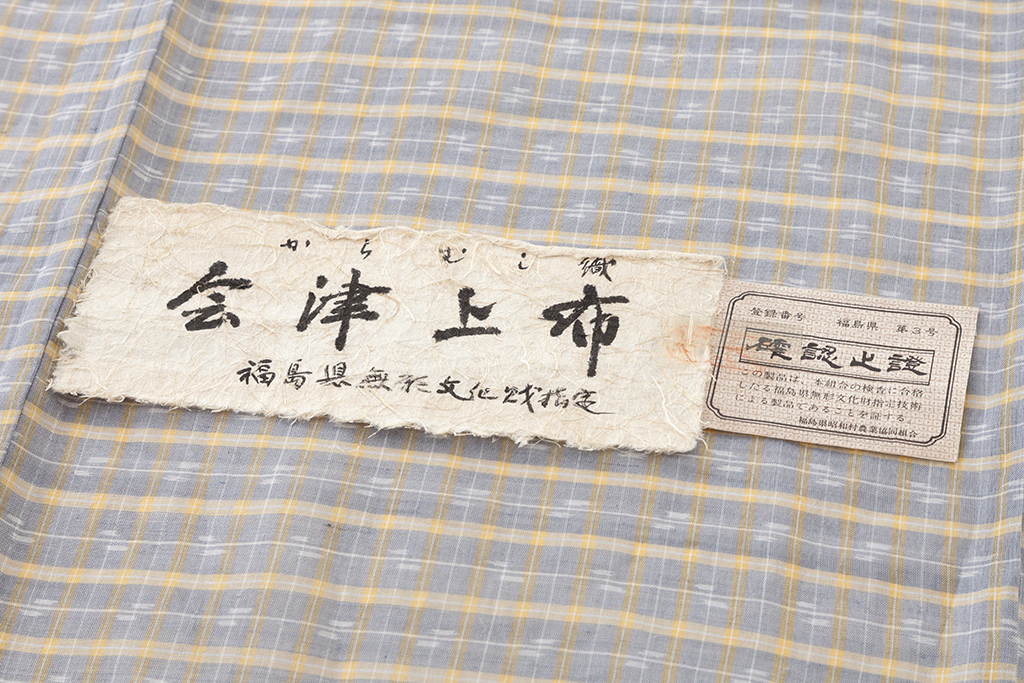 からむし織
会津上布
福島県無形文化財指定
登録番号 福島県 第3号
確認之證
この製品は、本組合の検査に合格
したる福島県無形文化財指定技術
による製品であることを証する
福島県昭和村農業協同組合